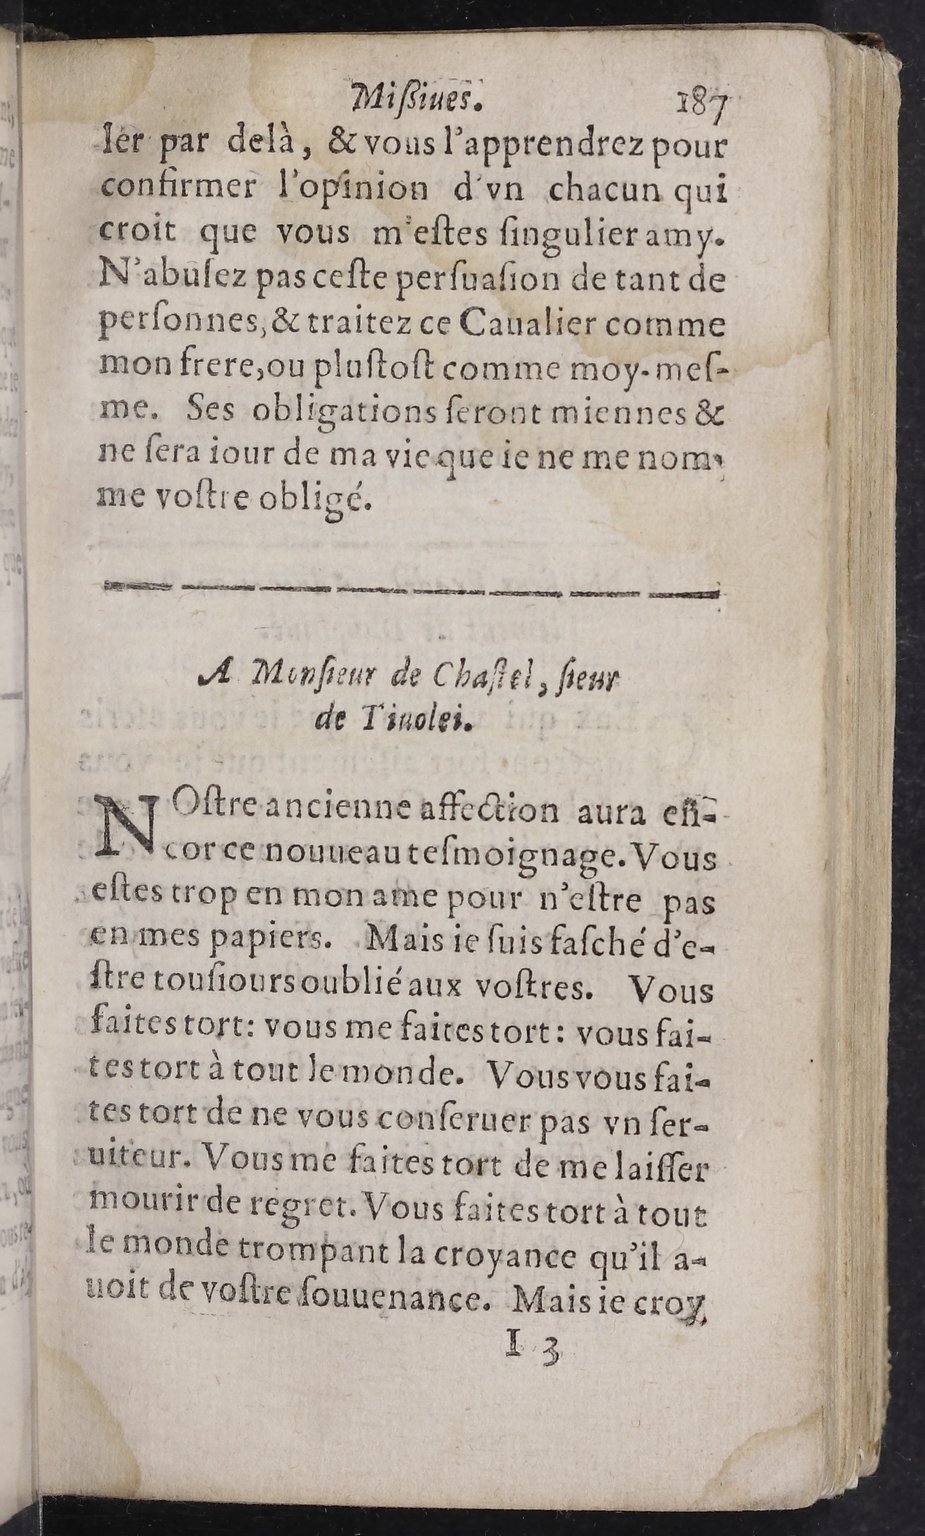 Miſſiues. 187
ler par delà, & vous l'apprendrez pour
confirmer l'opinion d'vn chacun qui
croit que vous m'eſtes ſingulier amy.
N'abuſez pas ceſte perſuaſion de tant de
perſonnes, & traitez ce Caualier comme
mon frere, ou pluſtoſt comme moy-meſ-
me. Ses obligations ſeront miennes &
ne ſera iour de ma vie que ie ne me nom-
me voſtre obligé.
A Monſieur de Chaſtel, ſieur
de Tiuolei.
NOſtre ancienne affection aura en-
cor ce nouueau teſmoignage. Vous
eſtes trop en mon ame pour n'eſtre pas
en mes papiers. Mais ie ſuis faſché d'e-
ſtre touſiours oublié aux voſtres. Vous
faites tort: vous me faites tort: vous fai-
tes tort à tout le monde. Vous vous fai-
tes tort de ne vous conſeruer pas vn ſer-
uiteur. Vous me faites tort de me laiſſer
mourir de regret. Vous faites tort à tout
le monde trompant la croyance qu'il a-
uoit de voſtre ſouuenance. Mais ie croy
I 3